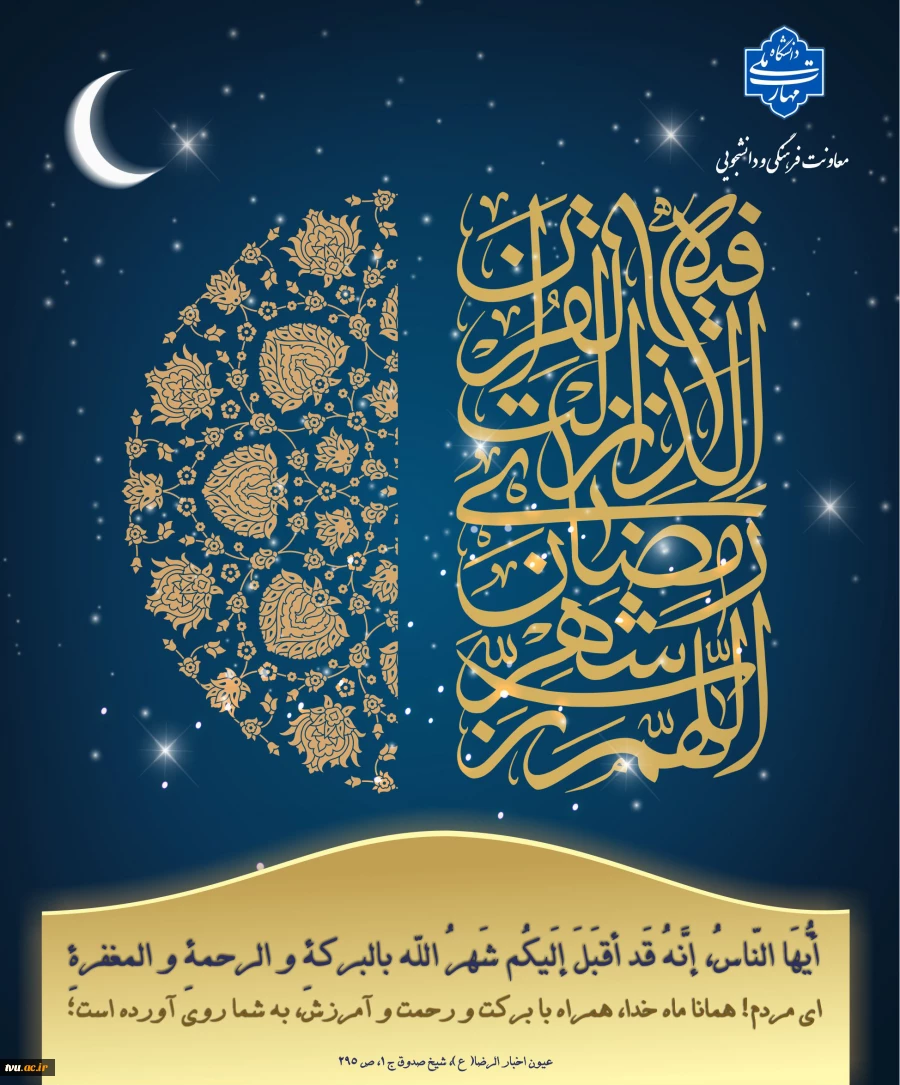 دانشگاه
ملی
مهارت
معاونت فرهنگی و دانشجویی
اللّهمّ ربّ شهر رمضان الذی انزلت فیه القرآن
أيُّهَا النّاسُ، إنَّهُ قَد أقبَلَ إلَيكُم شَهرُ اللّه بالبركةِ و الرحمةِ و المغفرةِ
ای مردم! همانا ماه خدا، همراه با برکت و رحمت و آمرزش، به شما روی آورده است؛
عیون اخبار الرضا( ع)، شیخ صدوق ج۱، ص ۲۹۵
tvu.ac.ir